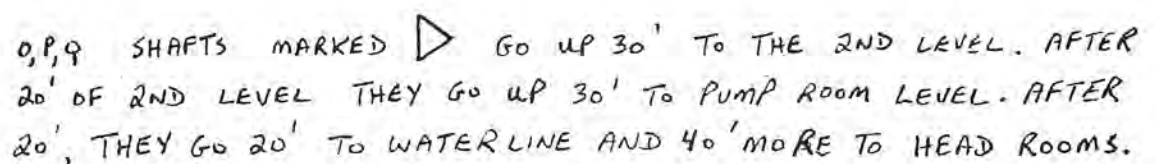 O,P,Q SHAFTS MARKED ▷ GO UP 30' TO THE 2ND LEVEL. AFTER
20' OF 2ND LEVEL THEY GO UP 30' TO PUMP ROOM LEVEL. AFTER
20', THEY GO 20' TO WATERLINE AND 40' MORE TO HEAD ROOMS.